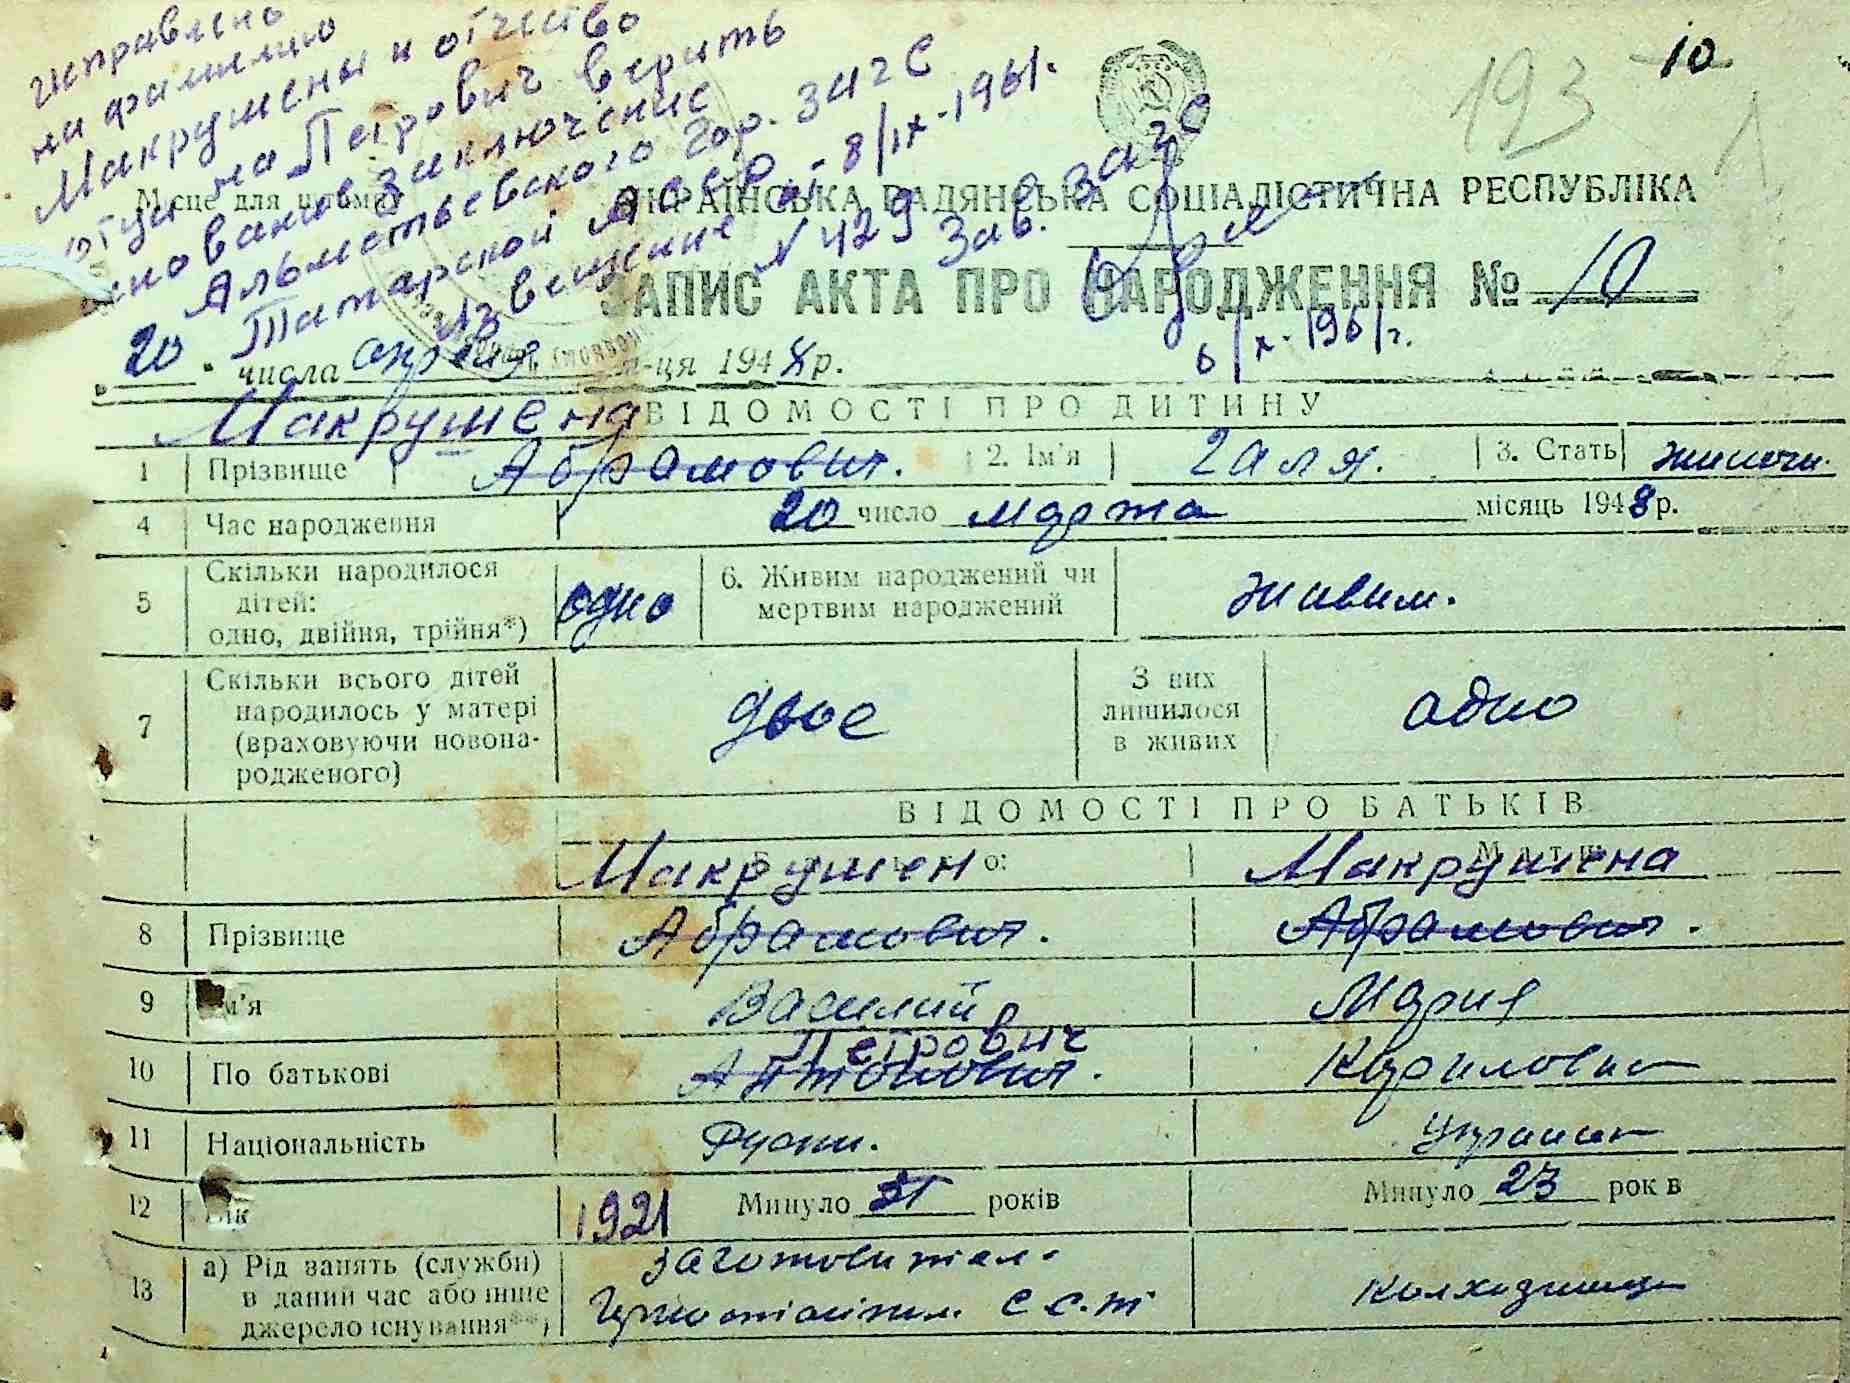 исправлено
на фамилию
Макрушены и отчество
отца на Петрович верить
основание заключение
Альметьевского Гор. ЗАГС
Татарской АССР
Извещение № 429 от 8/IX-1961.
Зав. Загс
6/X-1961г.
193
10
Місце для штампу
УКРАЇНСЬКА РАДЯНСЬКА СОЦІАЛІСТИЧНА РЕСПУБЛІКА
ЗАПИС АКТА ПРО НАРОДЖЕННЯ № 10
"20" числа апреля м-ця 1948 р.
ВІДОМОСТІ ПРО ДИТИНУ
Макрушена
1 Прізвище Абрамович. 2. Ім'я Галя. 3. Стать
4 Час народження 20 число марта місяць 1948 р.
5 Скільки народилося дітей: одно, двійня, трійня*) одно 6. Живим народжений чи мертвим народжений живим.
7 Скільки всього дітей народилось у матері (враховуючи новонародженого) двое З них лишилося в живих одно
ВІДОМОСТІ ПРО БАТЬКІВ
Батько: Мати
Макрушен Макрушена
8 Прізвище Абрамович. Абрамович.
9 Ім'я Василий Мария
Петрович
10 По батькові Антонович. Кириловна
11 Національність
12 Вік 1921 Минуло років Минуло 23 років
13 а) Рід занять (служби) в даний час або інше джерело існування**) заготовител.
Колхозница